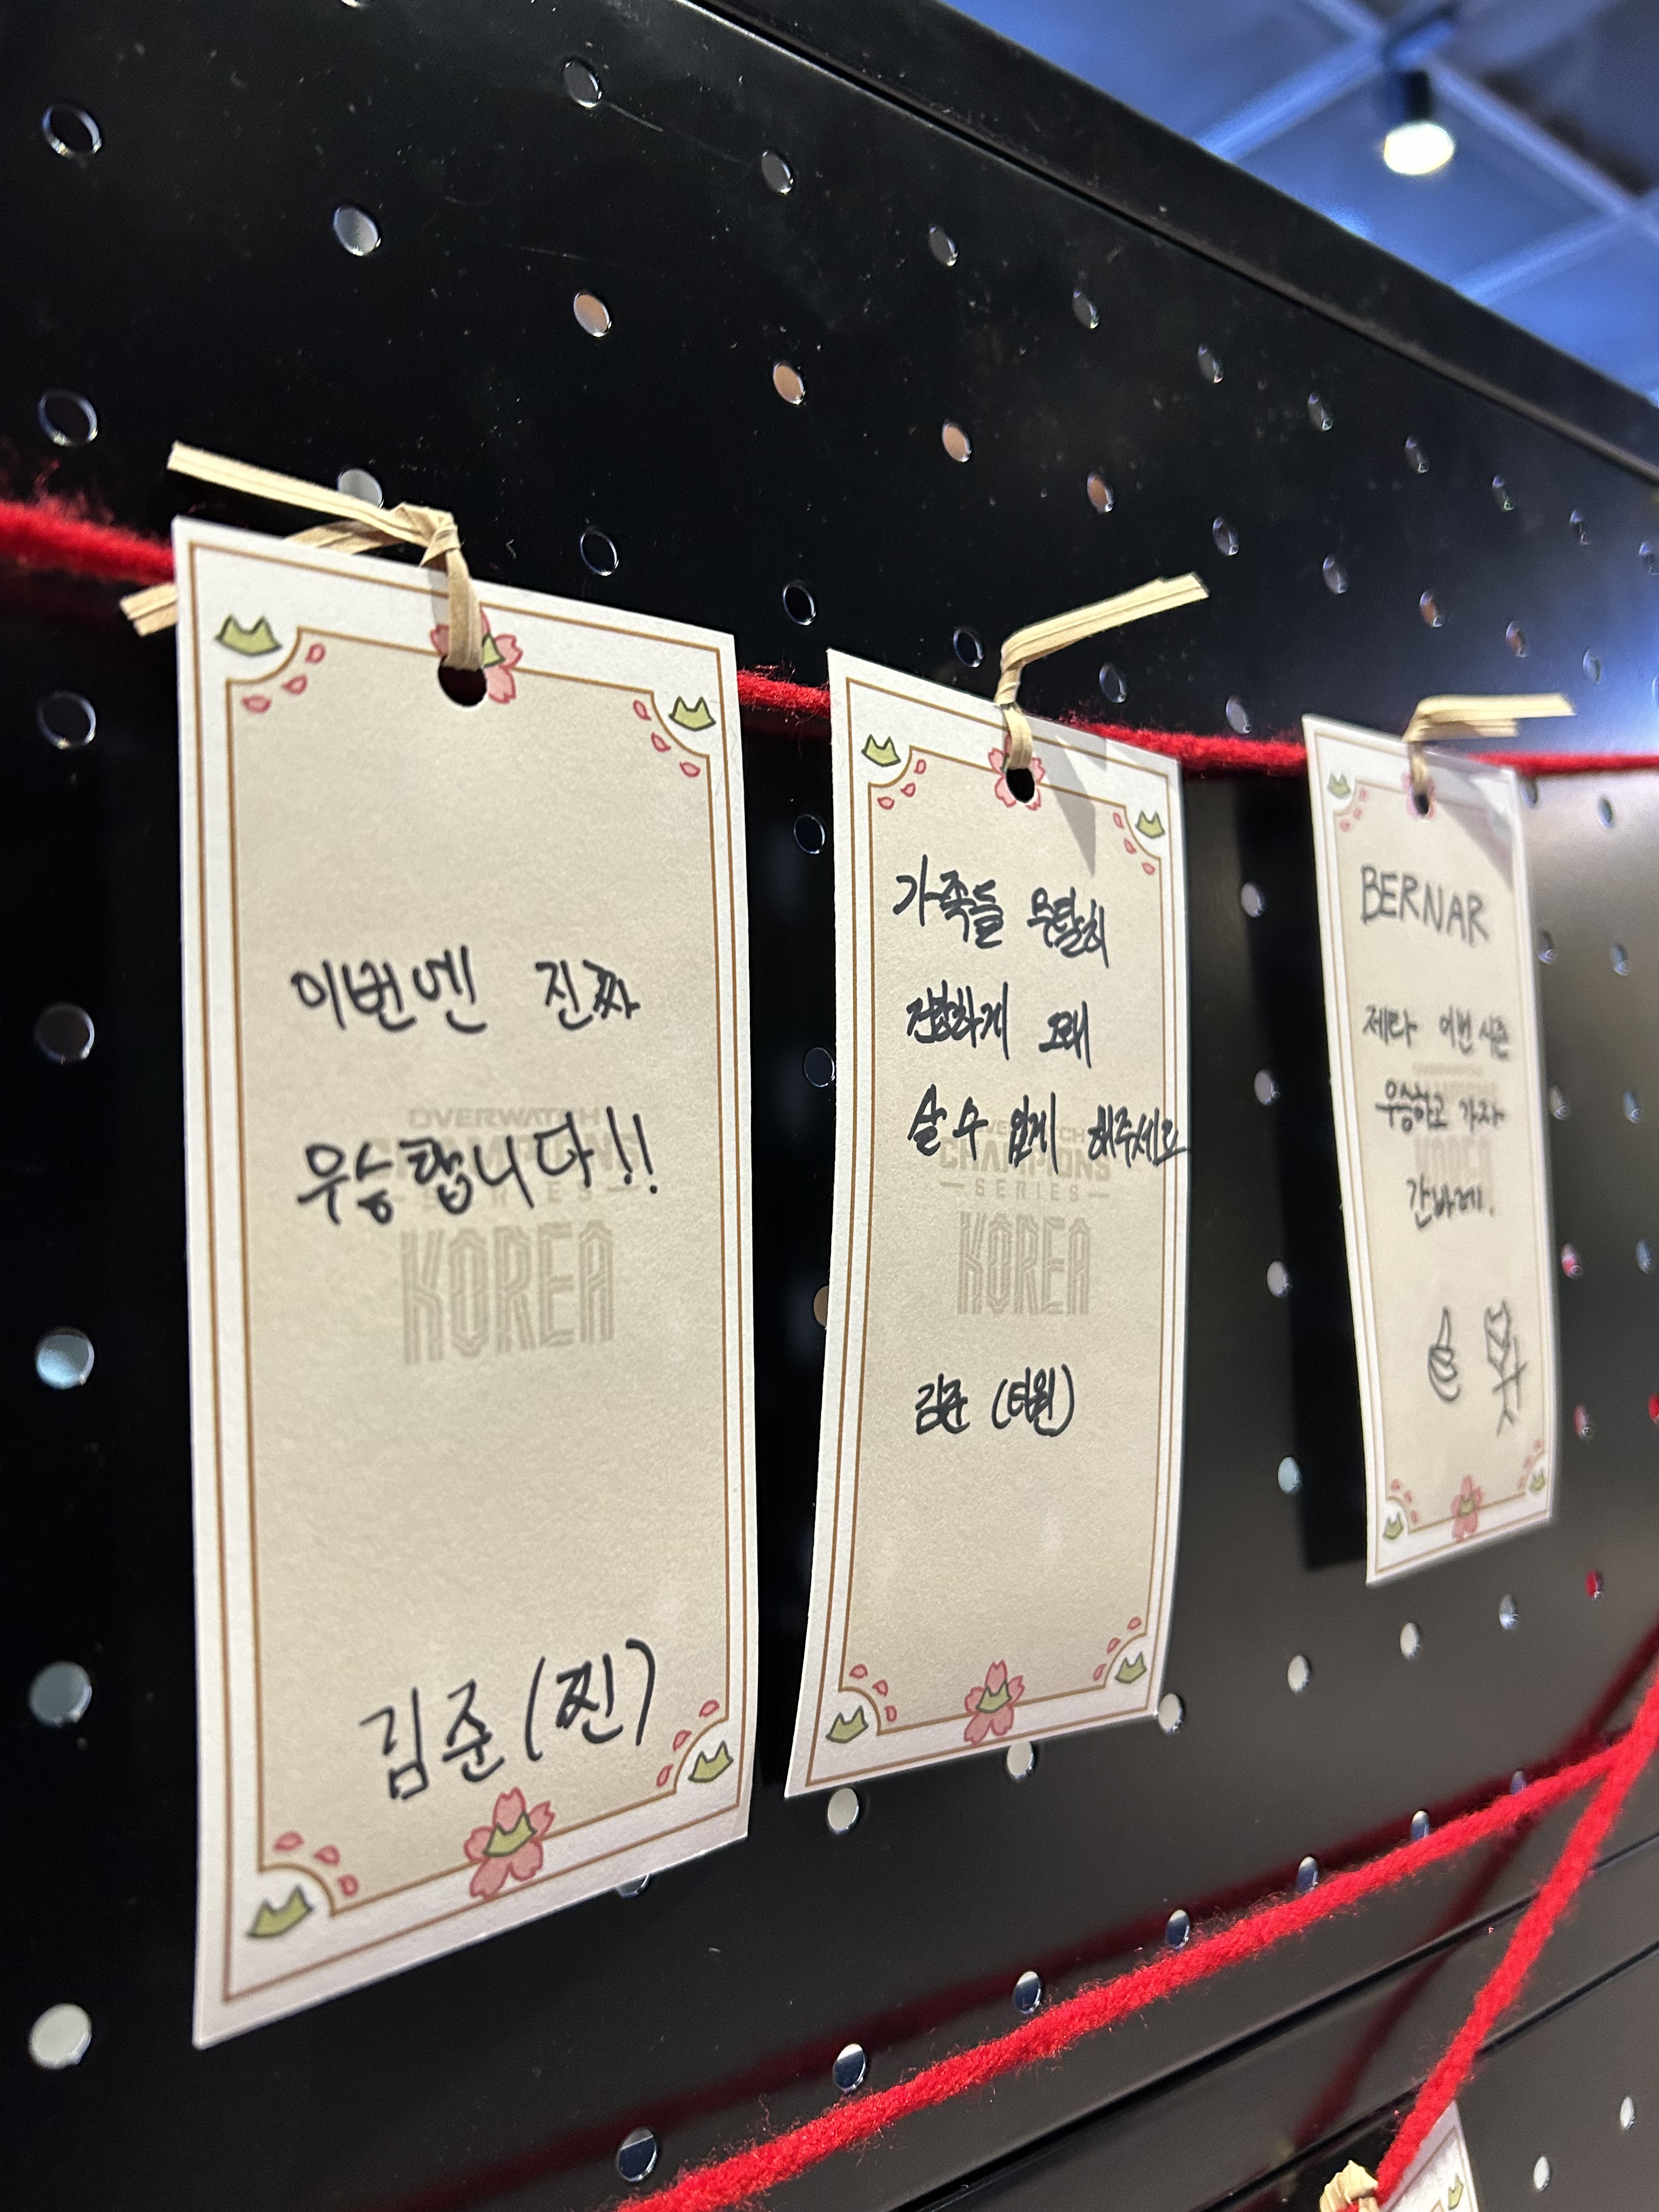 이번엔 진짜
우승합니다!!
OVERWATCH
CHAMPIONS
SERIES
KOREA
김준 (찐)
가족들 무탈히
건강하게 오래
살 수 있게 해주세요
OVERWATCH
CHAMPIONS
SERIES
KOREA
김준 (터원)
BERNAR
제타 이번 시즌
우승하고 가자
간바레.
KOREA